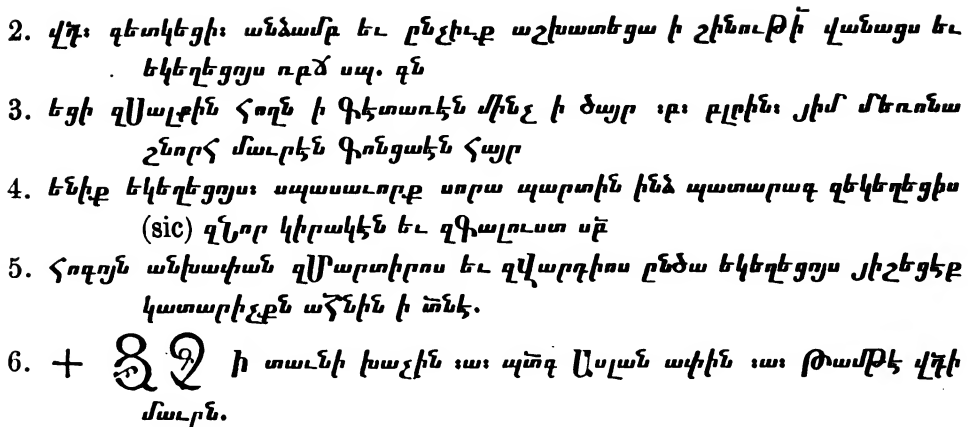 2. վդ̃։ զետկեցի։ անձամբ եւ ընչիւք աշխատեցա ի շինութի̃ վանացս եւ
եկեղեցոյս ուբճ սպ. զն
3. եցի զՍալքին Հողն ի Գետառէն մինչ ի ծայր ։բ։ բլրին։ յիմ մեռոնա
շնորՀ մաւրէն Գոնցաէն Հայր
4. ենիք եկեղեցոյս։ սպասաւորք սորա պարտին ինձ պատարագ զեկեղեցիս
(sic) զՆոր կիրակէն եւ զԳալուստ սբ̃
5. Հոգոյն անխափան զՄարտիրոս եւ զՎարդիոս ընծա եկեղեցոյս յիշեցէք
կատարիչքն աՀ̃նին ի տ̃նէ.
6. + ի տաւնի խաչին ։ա։ պտ̃գ Ասլան ափին ։ա։ Թամթէ վդ̃ի
մաւրն.